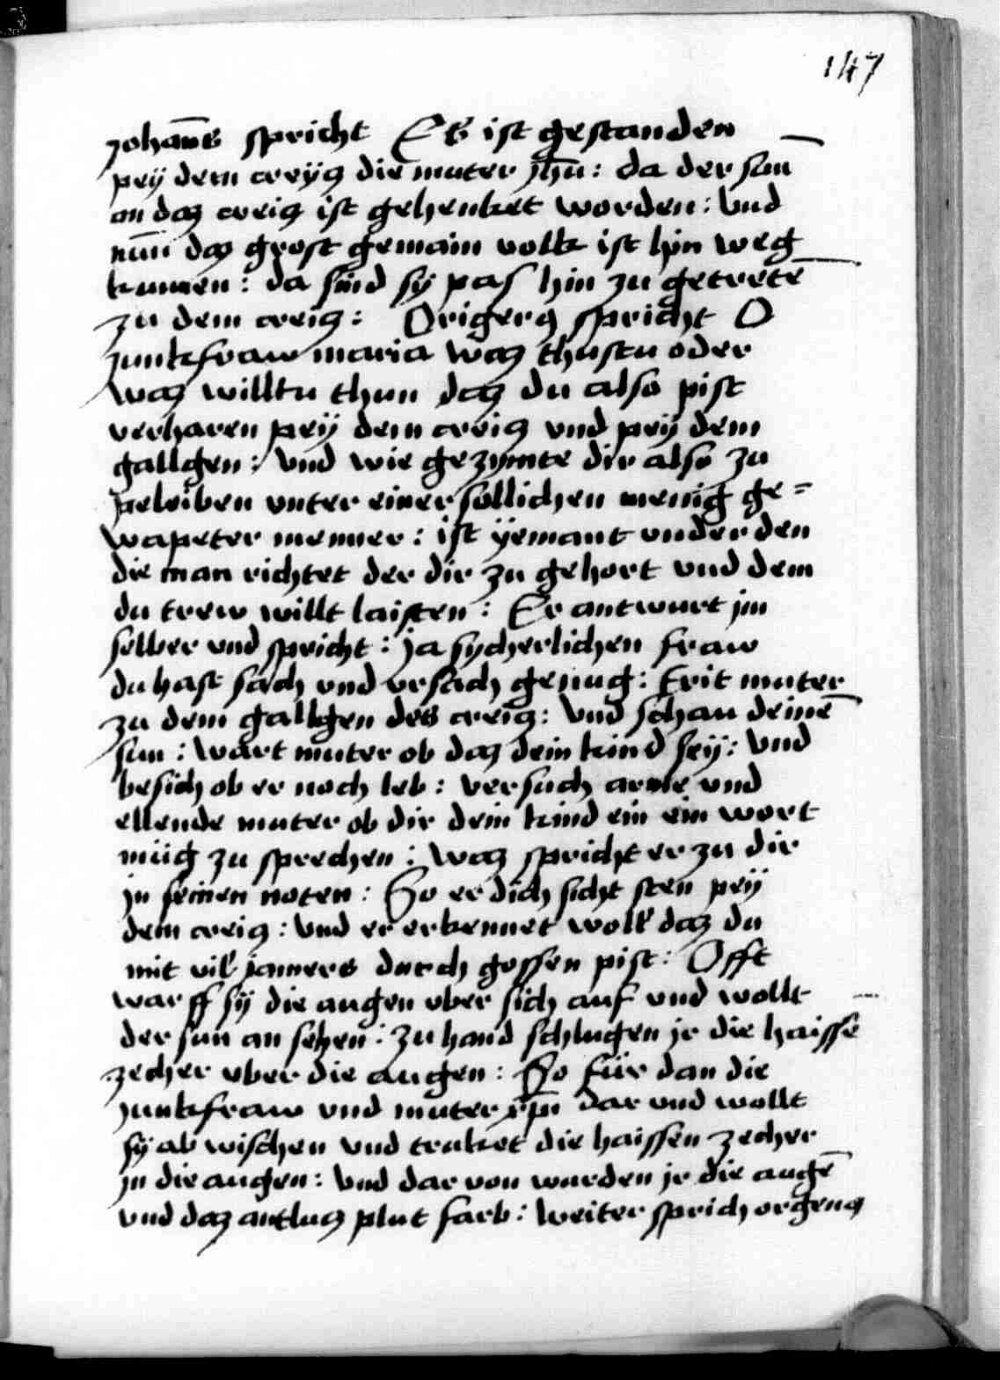 147
Johan̄es spricht Es ist gestanden
peÿ dem creÿcz die muter jhū: da der sun̄
an daz creicz ist gehenket worden: Vnd
nun̄ daz grost gemain volk ist hin weg
kumen: da sind sÿ pas hin zu getretē
zu dem creicz: Origenes spricht O
junkfraw maria waz thustu oder
waz willtu thun daz du also pist
verharen peÿ dem creicz vnd peÿ dem
gallgen: Vnd wie gezymte dir also zu
peleiben vnter einer sollichen menig ge=
wapeter menner: ist ÿemant vnder den
die man richtet der dir zu gehort vnd dem
du trew willt laisten: Er antwurt jm
selber vnd spricht: ja sycherlichen fraw
du hast sach vnd vrsach genug: Trit muter
zu dem gallgen des creicz: Vnd schau deinē
sun: Wart muter ob daz dein kind seÿ: Vnd
besich ob er noch leb: Versuch arme vnd
ellende muter ob dir dein kind ein ein wort
müg zu sprechen: Waz spricht er zu dir
jn seinen noten: So er dich sicht sten peÿ
dem creicz: Vnd er erkennet woll daz du
mit vil jamers durch gossen pist: Offt
warff sÿ die augen vber sich auf vnd wollt
der sun an sehen: zu hand schlugen jr die haisse
zecher vber die augen: So für dan die
junkfraw vnd muter xp̄i dar vnd wollt
sÿ ab wischen vnd truket die haissen zecher
jn die augen: Vnd dar von wurden jr die augē
vnd daz antlucz plut farb: Weiter sprich orgenes